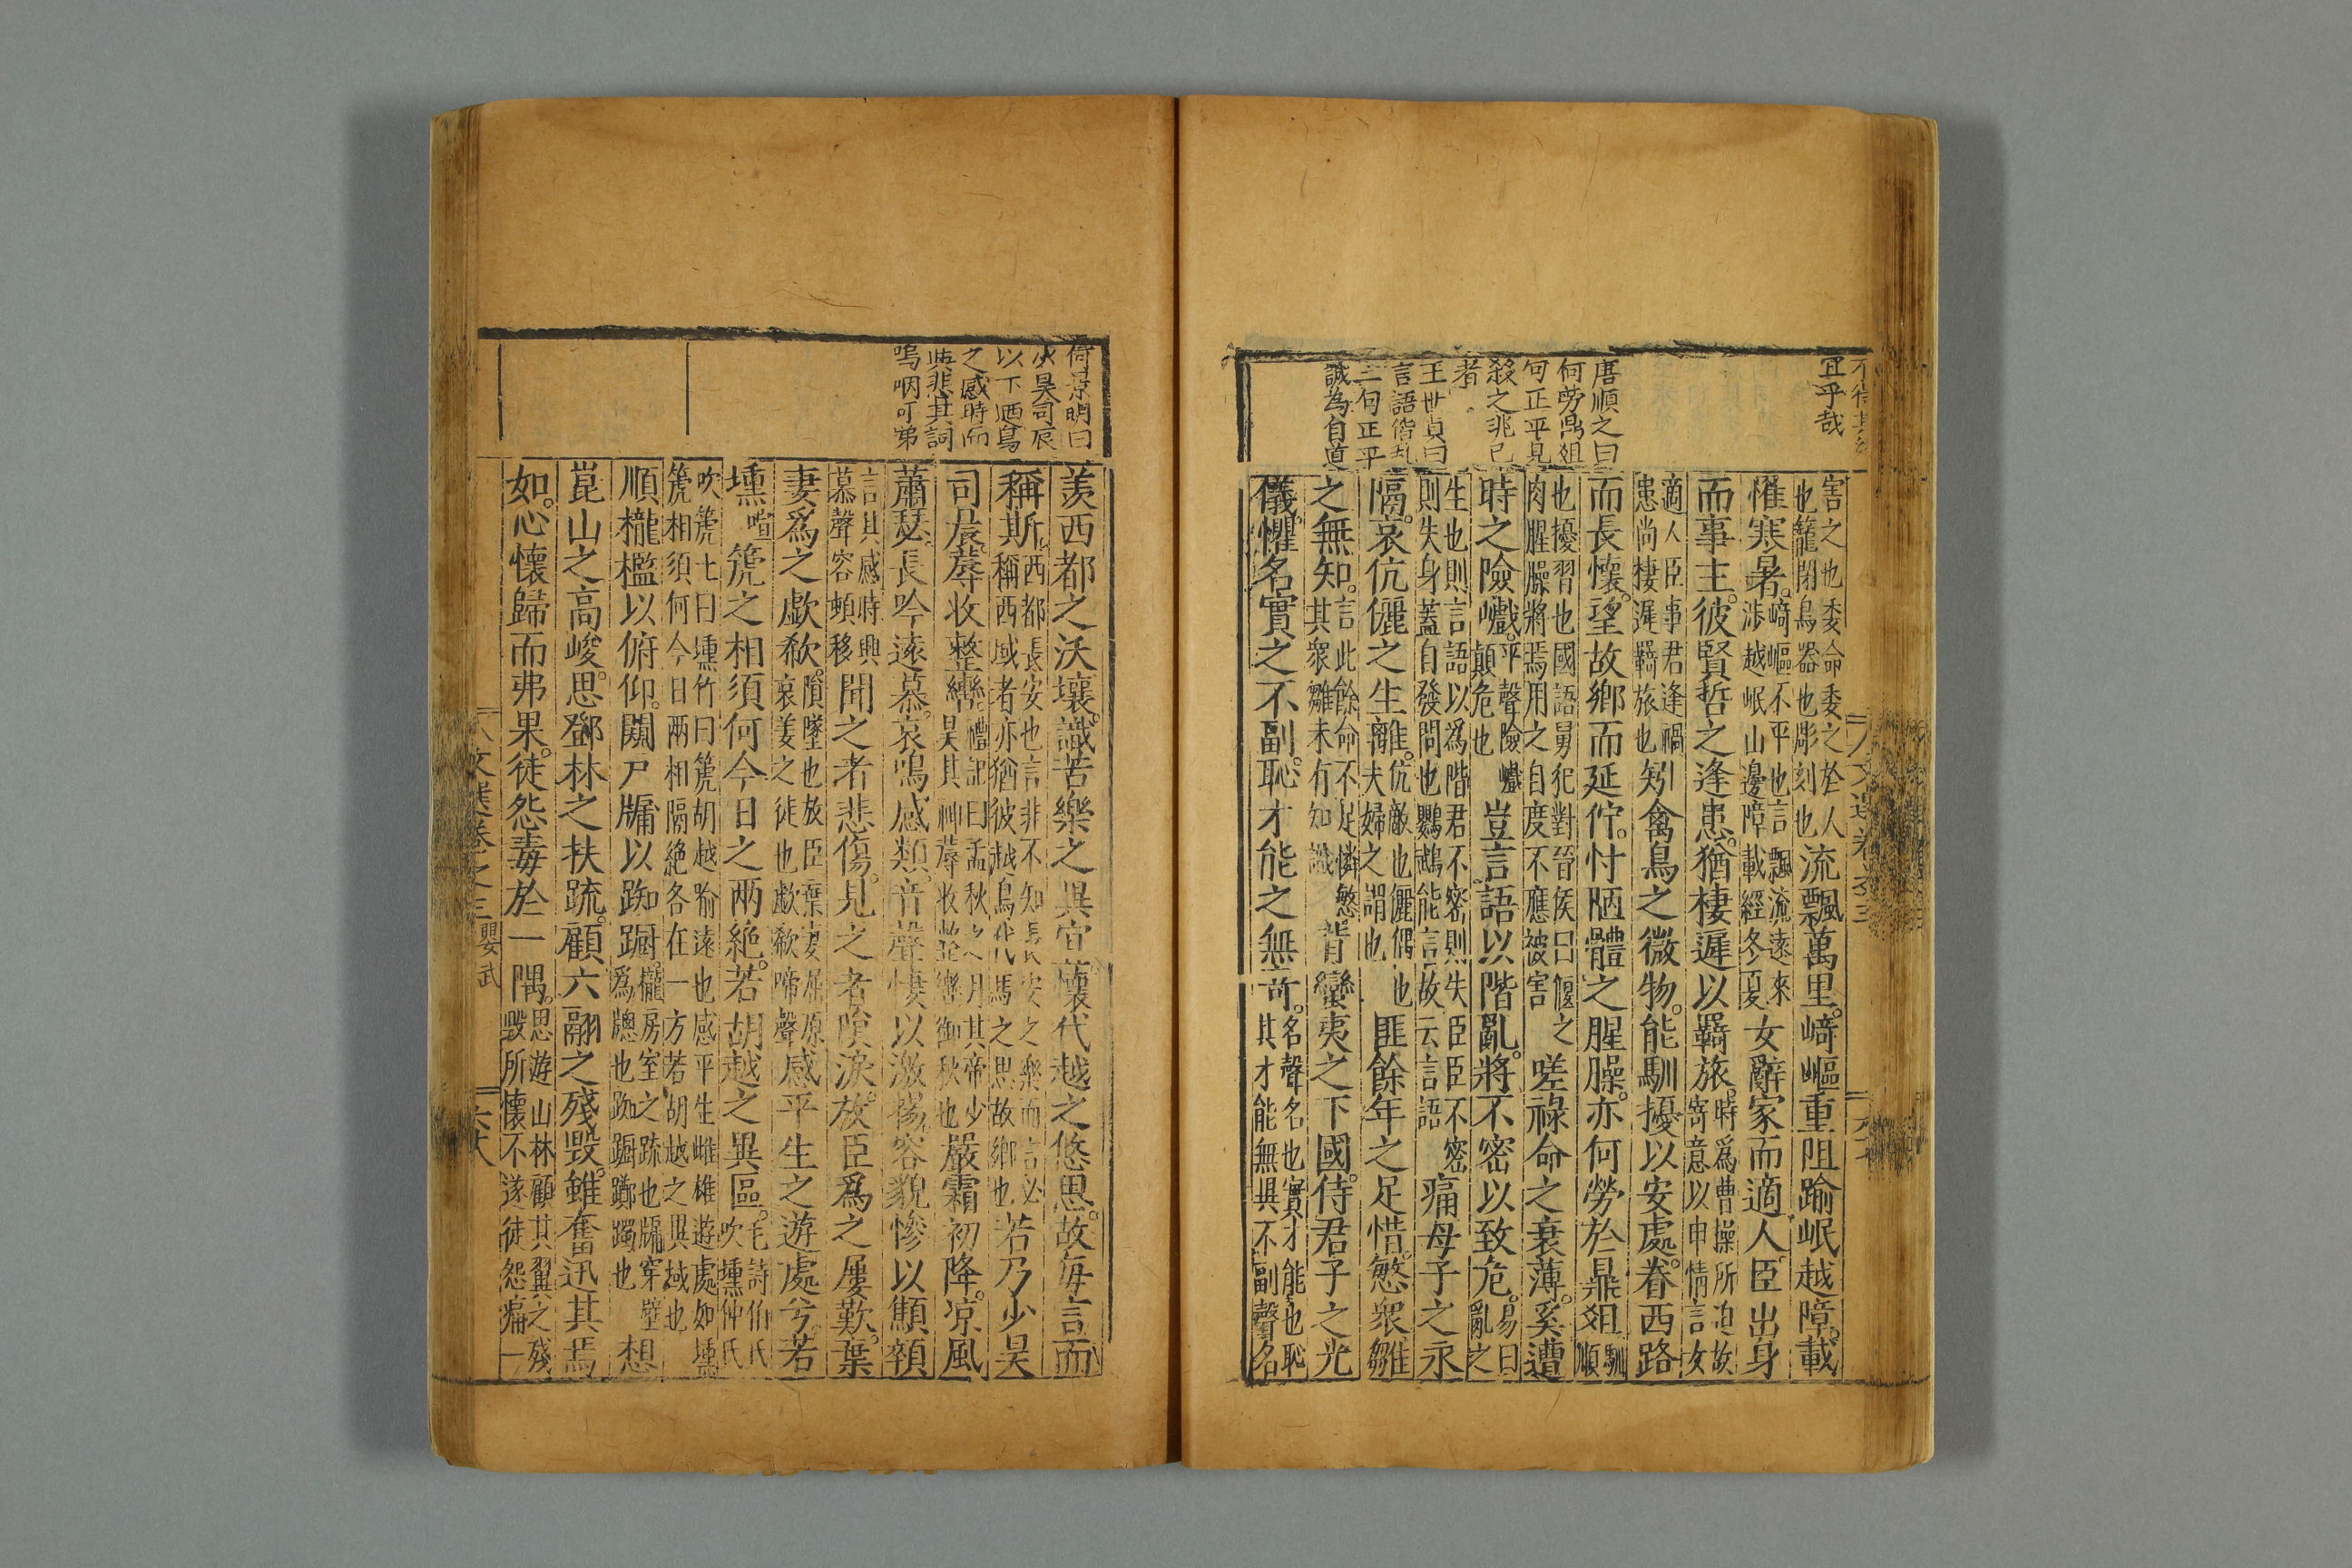 宜乎哉
唐順之曰
何勞鼎俎
句正平見
殺之兆已
者
王世貞曰
言語階亂
三句正平
誠為自道
害之也委命委之於人
也籠閉鳥器也彫刻也
流飄萬里崎嶇重阻踰岷越障載
罹寒暑
崎嶇不平也言飄流遠來
涉越岷山邊障載經冬夏
女辭家而適人臣出身
而事主彼賢哲之逢患猶棲遲以羇旅
時爲曹操所迫故
寄意以申情言女
適人臣事君逢禍
患尚棲遲羇旅也
矧禽鳥之微物能馴擾以安處眷西路
而長懷望故鄉而延佇忖陋體之腥臊亦何勞於鼎俎
馴順
也擾習也國語舅犯對晉侯曰偃之
肉腥臊將焉用之自度不應被害
嗟祿命之衰薄奚遭
時之險巇
平聲險巇
顛危也
豈言語以階亂將不密以致危
易曰
亂之
生也則言語以爲階君不密則失臣臣不密
則失身蓋自發問也鸚鵡能言故云言語
痛母子之永
隔哀伉儷之生離
伉敵也儷偶也
夫婦之謂也
匪餘年之足惜慜衆雛
之無知
言此餘命不足憐慜
其衆雛未有知識
背蠻夷之下國侍君子之光
儀懼名實之不副恥才能之無奇
名聲名也實才能也恥
其才能無異不副聲名
何景明曰
少昊司辰
以下迺鳥
之感時而
興悲其詞
嗚咽可弟
羨西都之沃壤識苦樂之異宜懷代越之悠思故每言而
稱斯
西都長安也言非不知長安之樂而言必
稱西域者亦猶彼越鳥代馬之思故鄉也
若乃少昊
司辰蓐收整轡
禮記曰孟秋之月其帝少
昊其神蓐收整轡御秋也
嚴霜初降涼風
蕭瑟長吟遠慕哀鳴感類音聲悽以激揚容貌慘以顦顇
言其感時興
慕聲容頓移
聞之者悲傷見之者隕淚放臣爲之屢歎棄
妻爲之歔欷
隕墜也放臣棄妻屈原
哀姜之徒也歔欷啼聲
感平生之遊處兮若
壎
喧
篪之相須何今日之兩絕若胡越之異區
毛詩伯氏
吹壎仲氏
吹篪七曰壎竹曰篪胡越喻遠也感平生雌雄遊處如壎
篪相須何今日兩相隔絕各在一方若胡越之異域也
順櫳檻以俯仰闚戶牖以踟躕
櫳房室之疏也牖穿壁
爲牕也踟躕躑躅也
想
崑山之高峻思鄧林之扶疏顧六翮之殘毀雖奮迅其焉
如心懷歸而弗果徒怨毒於一隅
思遊山林顧其翼之殘
毀所懷不遂徒怨痛一
文選卷之三
鸚武
六十八